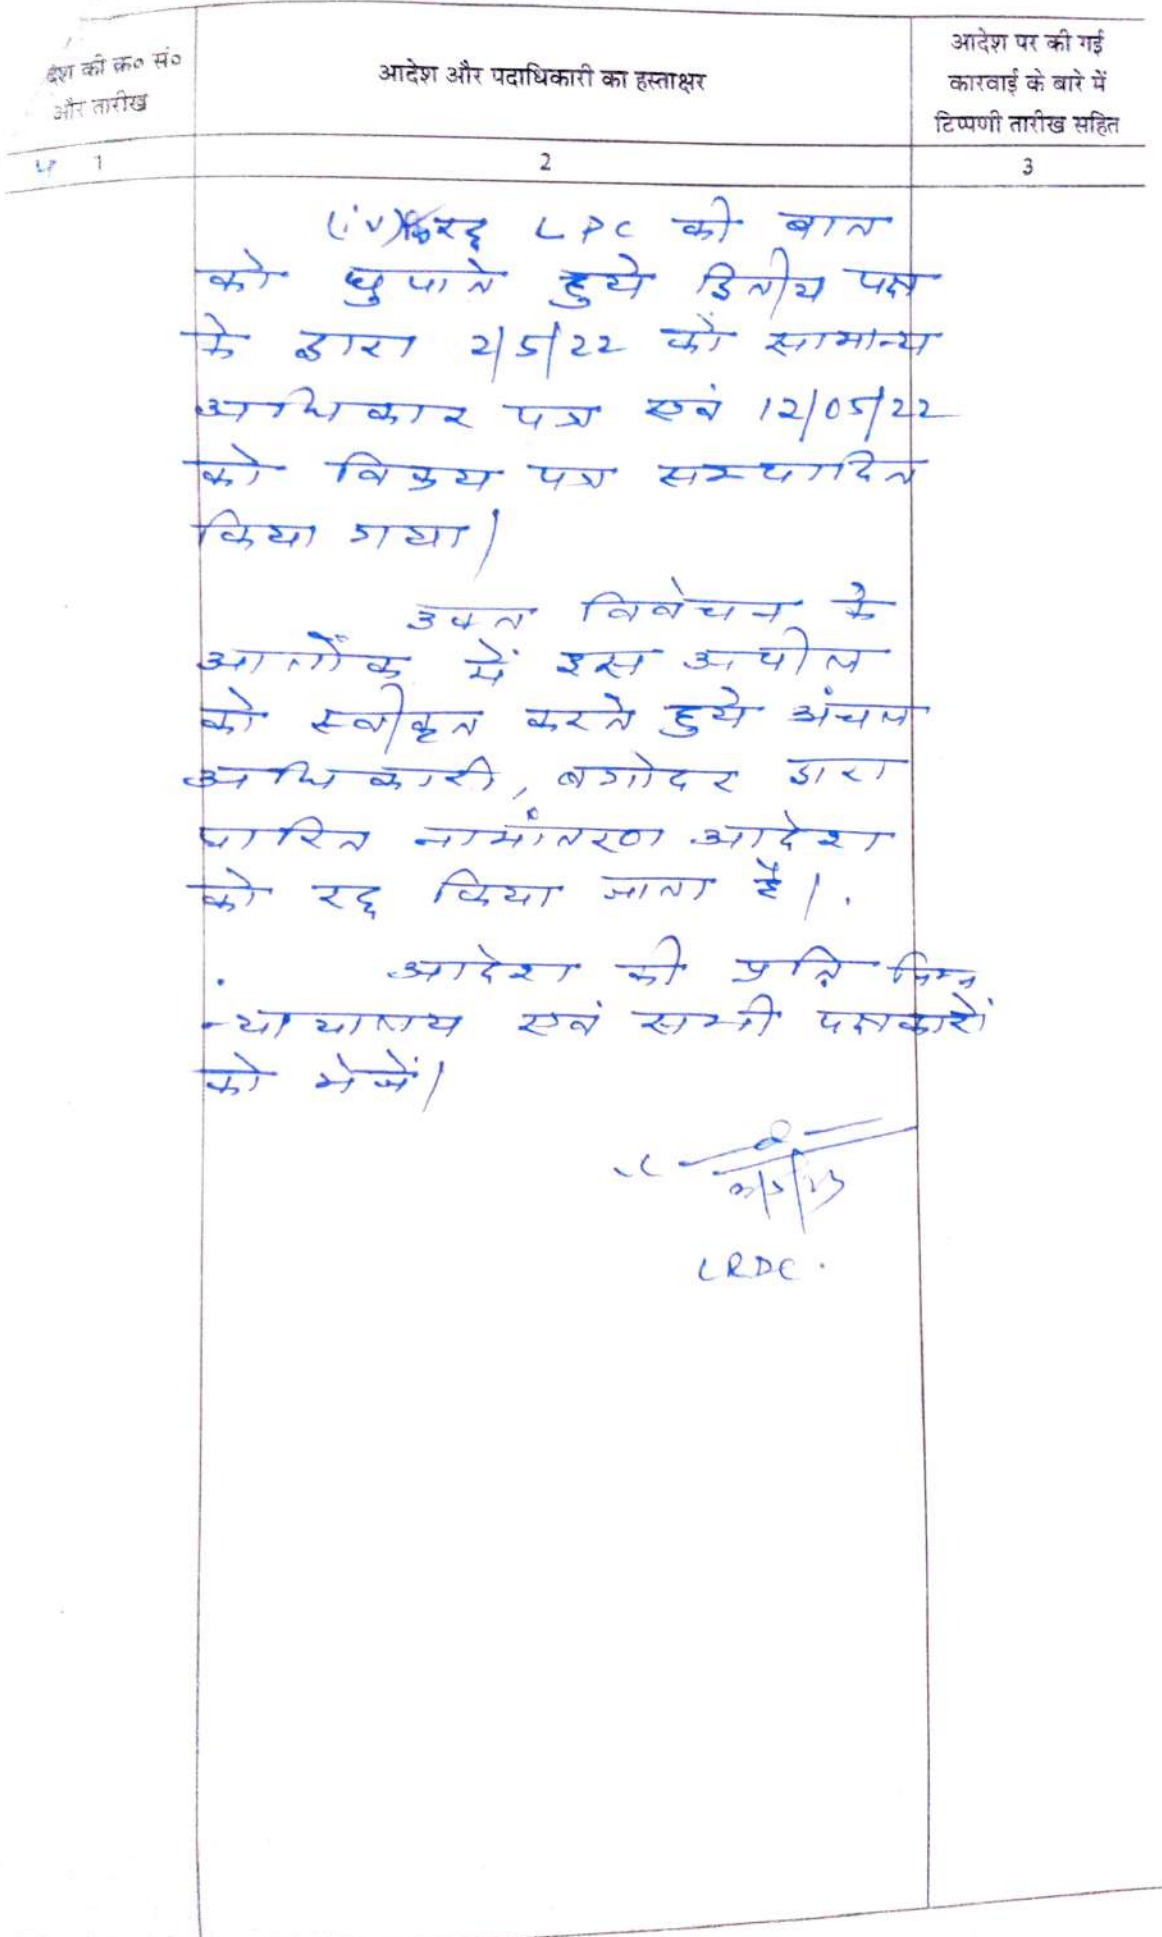 देश की क्र० सं०
और तारीख
आदेश और पदाधिकारी का हस्ताक्षर
आदेश पर की गई
कारवाई के बारे में
टिप्पणी तारीख सहित
1
2
3
(iv) रद्द LPC की बात
को छुपाते हुये द्वितीय पक्ष
के द्वारा 2/5/22 को सामान्य
अधिकार पत्र एवं 12/05/22
को विक्रय पत्र सम्पादित
किया गया|
उक्त विवेचन के
आलोक में इस अपील
को स्वीकृत करते हुये अंचल
अधिकारी, बगोदर द्वारा
पारित नामांतरण आदेश
को रद्द किया जाता है|.
आदेश की प्रति निम्न
न्यायालय एवं सभी पक्षकारों
को भेजें|
LRDC.